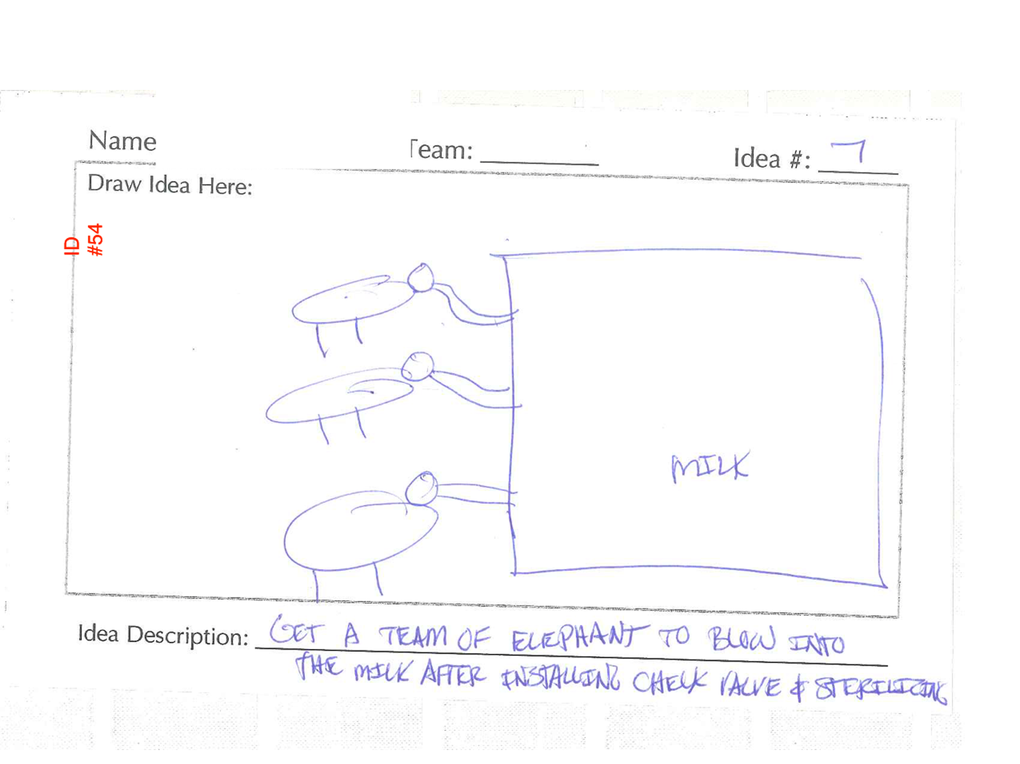 Name
Team:
Idea #: 7
Draw Idea Here:
ID
#54
MILK
Idea Description: GET A TEAM OF ELEPHANT TO BLOW INTO
THE MILK AFTER INSTALLING CHECK VALVE & STERILIZING